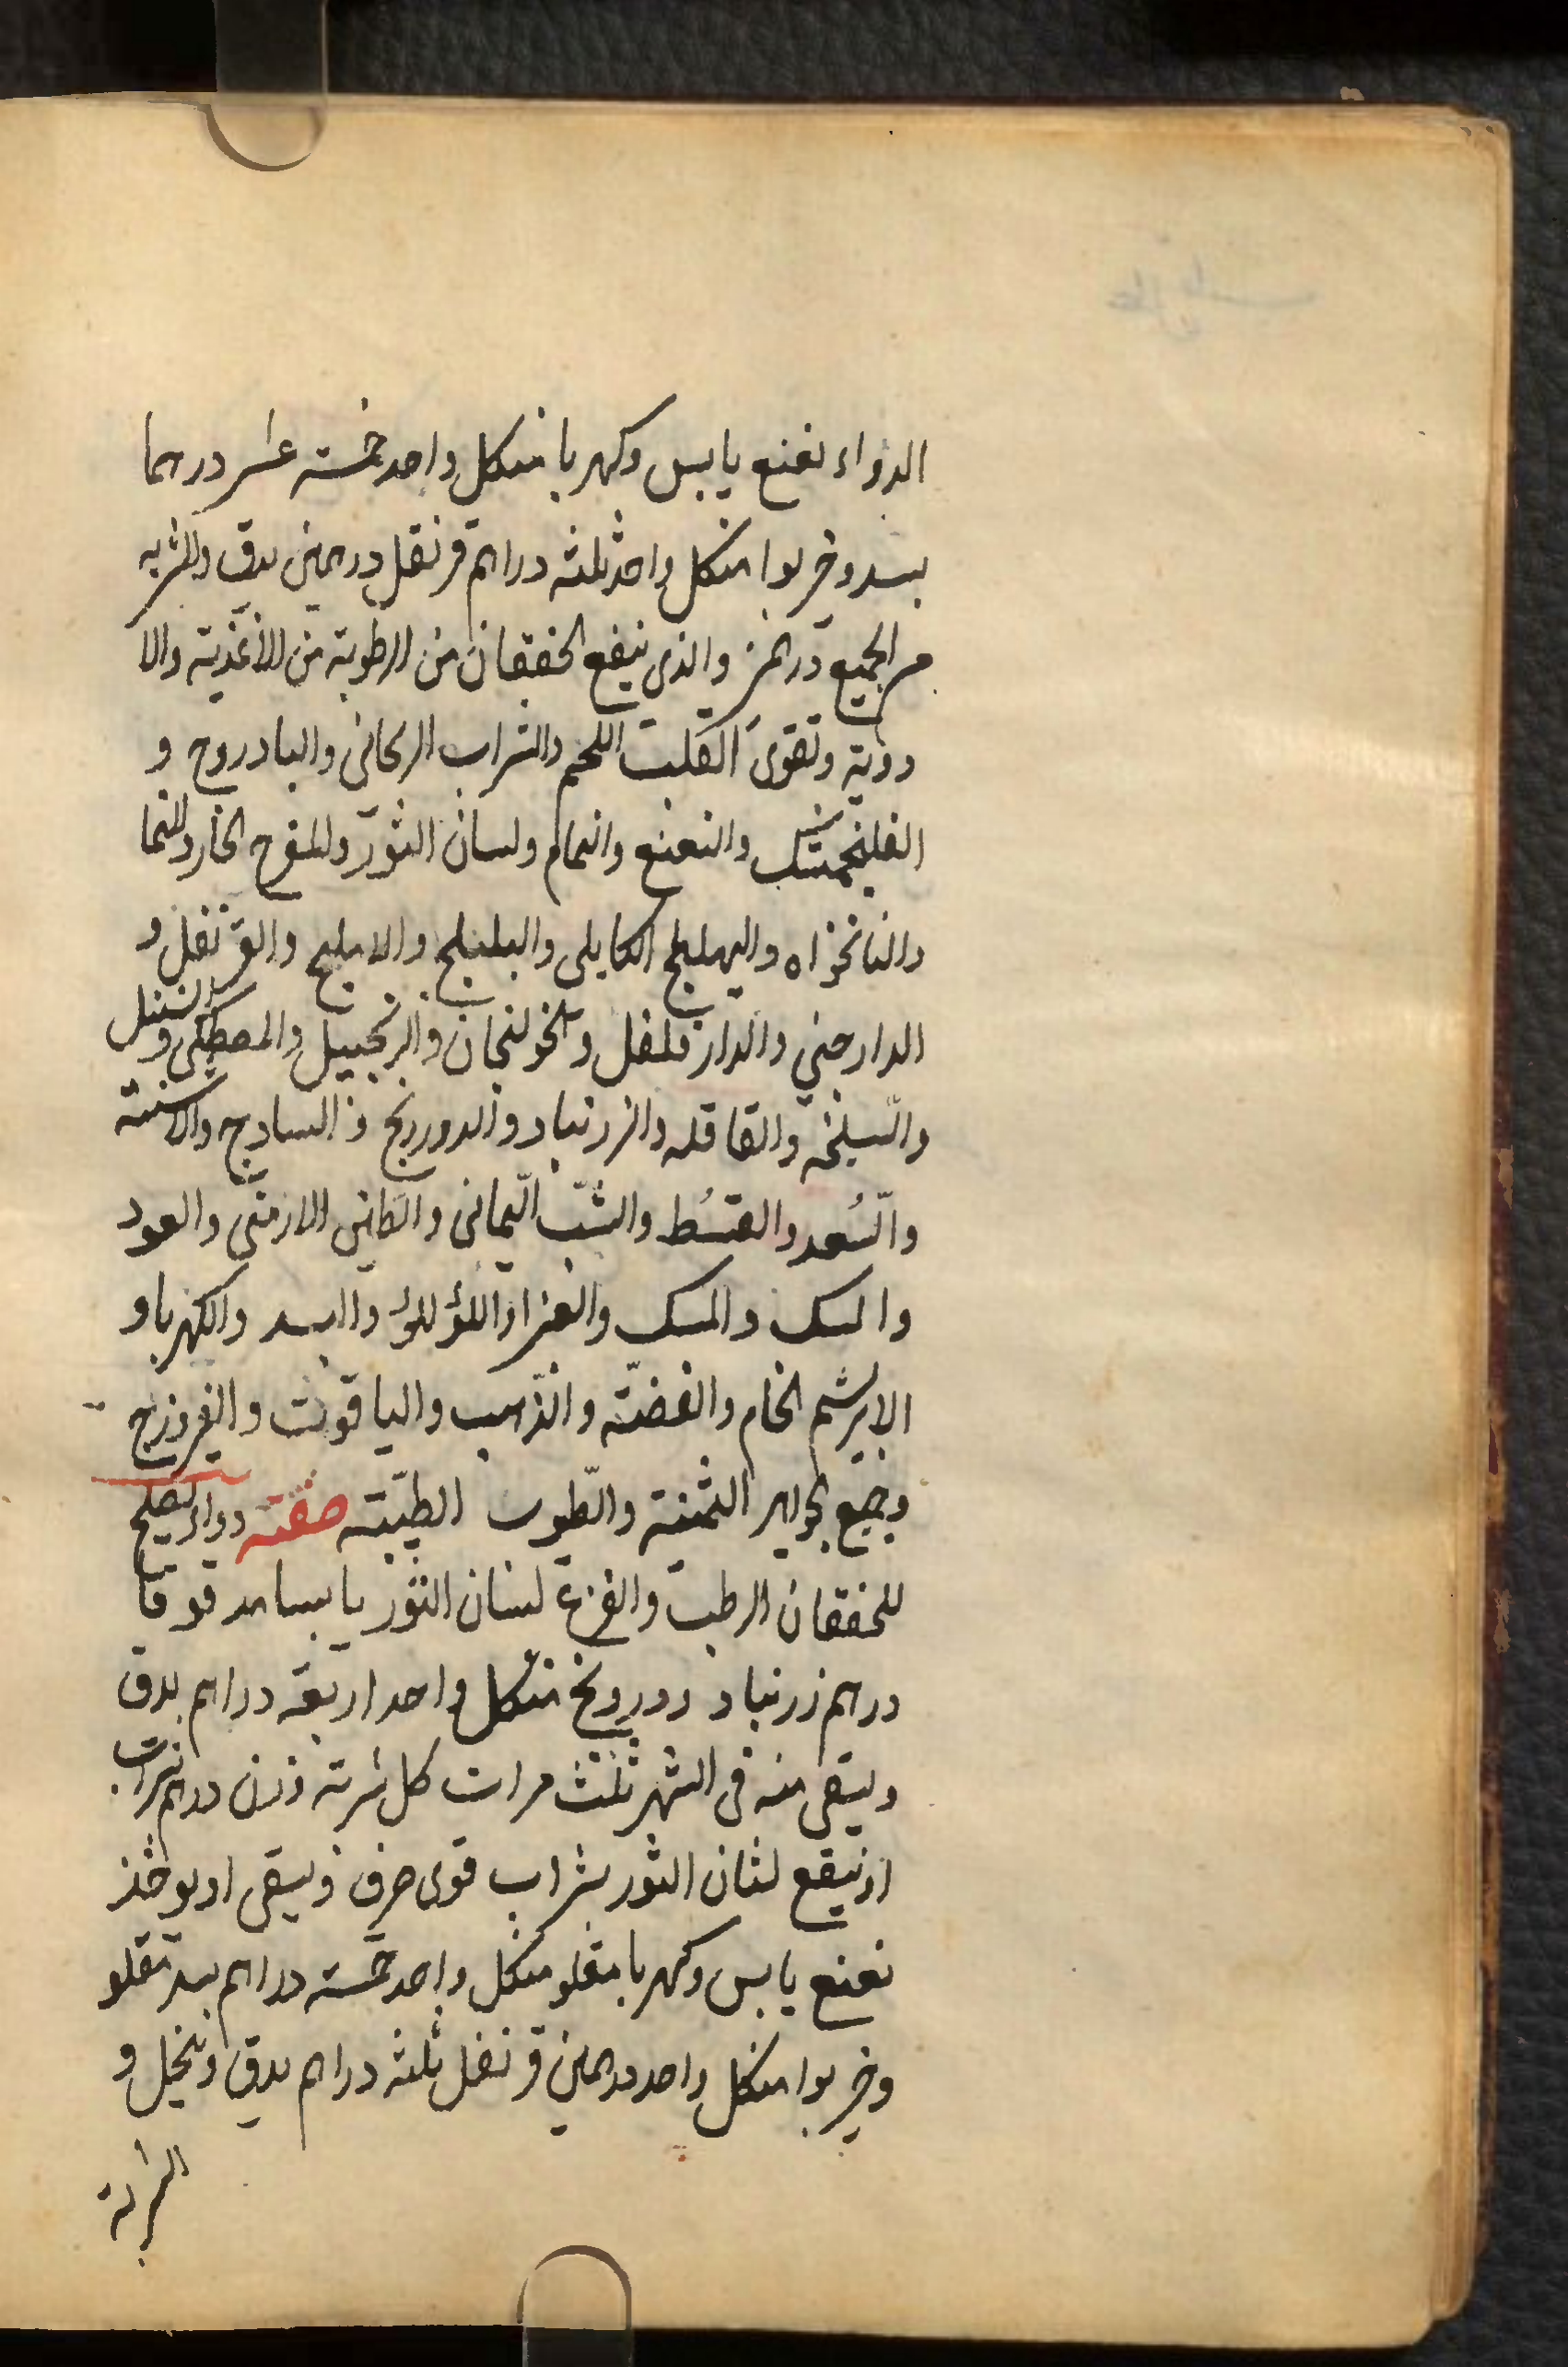 الدواء نعنع يابس وكهربا منكل واحد خمسة عشر درهما
بسد وخربوا منكل واحد ثلثه دراهم قرنفل درهمين يدق والشربه
من الجميع درهمين والذى ينفع الخفقان من الرطوبة من الاغذية والا
دوية وتقوى القلب اللحم والشراب الريحانى والبادروج و
الفلنجمشك والنعنع والنمام ولسان الثور وللمفرح الحار والنما
والنانخواه والهليلج الكابلى والبليلج والاملج والقرنفل و
الدارجينى والدارفلفل والخولنجان والزنجبيل والمصطكى والسنبل
والسليخه والقاقله والزرنباد والدورونج والسادج والاشنة
والسُعد والقسُط والشبّ اليمانى والطين الارمنى والعود
والسك والمسك والعنبر واللؤلؤ والبسد والكهربا و
الابريشم الخام والفضّة والذّهب والياقوت والفيروزج
وجميع الجواهر الثمنية والطيوب الطيّبة صفة دواء يصلح
للخفقان الرطب والفزع لسان الثور يابسا مدقوقا
درهم زرنباد دورونج منكل واحد اربعة دراهم يدق
ويسقى منه فى الشهر ثلث مرات كل شربة وزن درهم بشراب
او ينقع لثان الثور بشراب قوى صرف ويسقى او يوخذ
نعنع يابس وكهربا مقلو منكل واحد خمسة دراهم بسد مقلو
وخربوا منكل واحد درهمين قرنفل ثلثه دراهم يدق وينخل و
الشربة